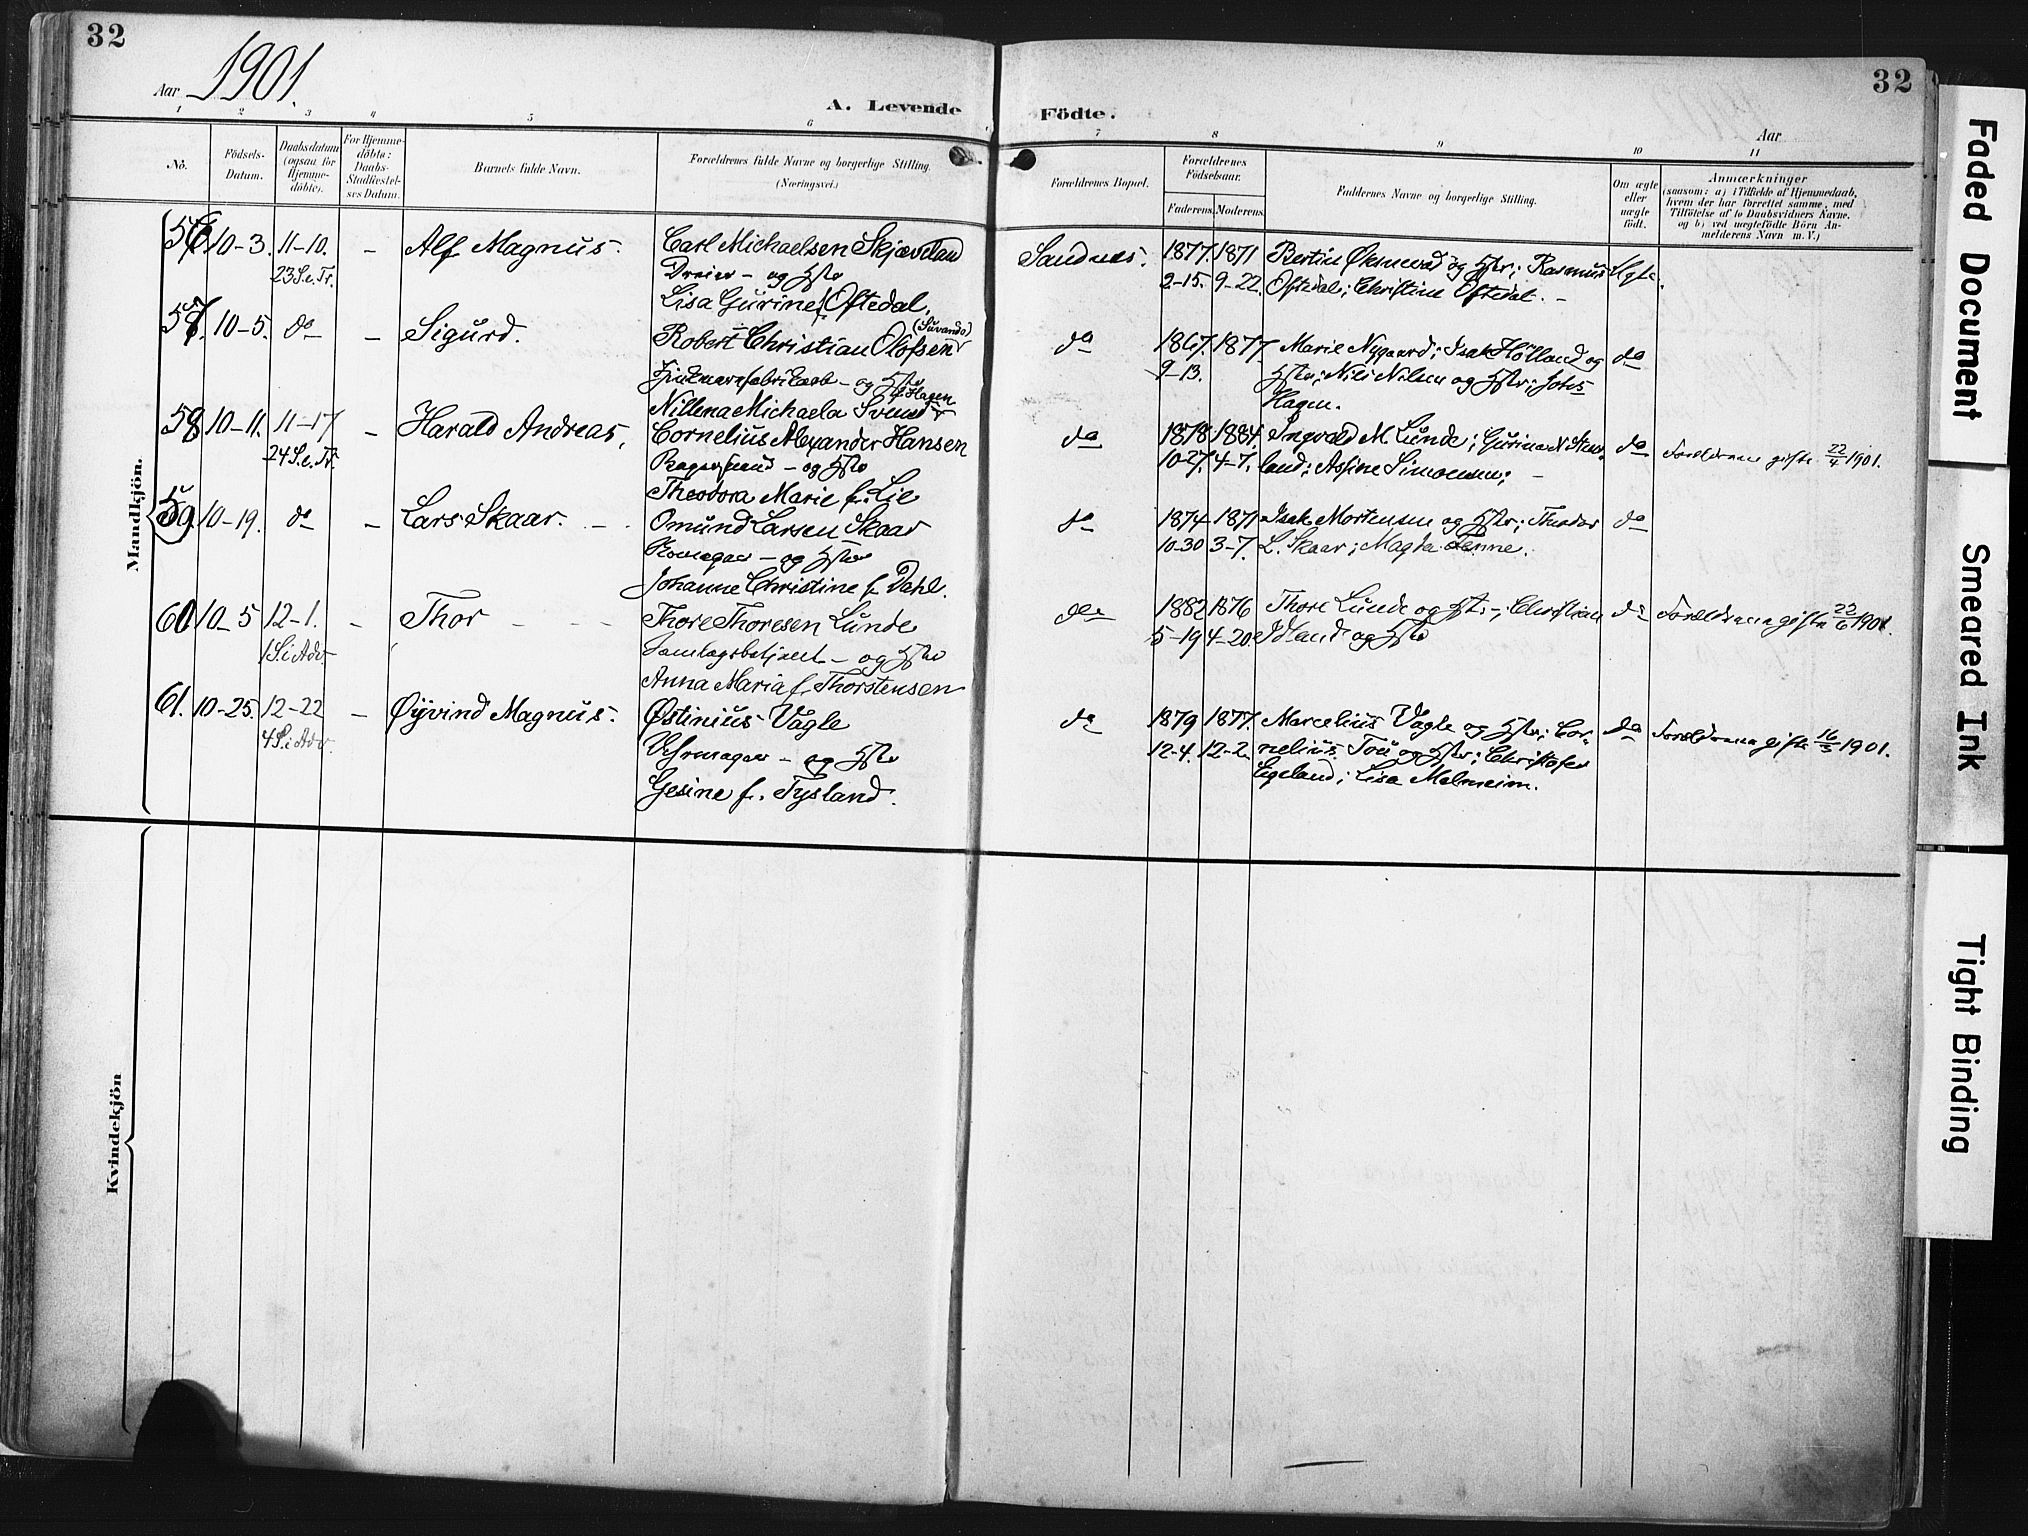 32
32
Aar 1901.
A. Levende
Födte.
Aar
1 2 3 4 5 6 7 8 9 10 11
Nö.
Födsels-
Datum.
Daabsdatum
(ogsaa for
Hjemme-
döbte).
For Hjemme-
döbte:
Daabs-
Stadfæstel-
ses Datum.
Barnets fulde Navn.
Forældrenes fulde Navne og borgerlige Stilling.
(Næringsvei.)
Forældrenes Bopæl.
Forældrenes
Födselsaar.
Faderens. Moderens.
Faddernes Navne og borgerlige Stilling.
Om ægte
eller
uægte
födt.
Anmærkninger
(saasom: a) i Tilfælde af Hjemmedaab,
hvem der har forrettet samme, med
Tilföielse af to Daabsvidners Navne,
og b) ved uægtefödte Börn An-
melderens Navn m. V.)
Mandkjön.
56 10-3. 11-10. - Alf Magnus. Carl Michaelsen Skjæveland Sandnes. 1877. 1871 Bertin og Hstr; Rasmus Ægte.
23 S. e. Tr. Dreier - og Hstr 2-15. 9-22. Oftedal; Christine Oftedal. -
Lisa Gurine f. Oftedal.
(Suvando)
57. 10-5. do - Sigurd. Robert Christian Olofsen do 1867. 1877 Marie Nygaard; Isak Hølland og do
- og Hstr 9-13. Hstr; Nils Nilsen og Hstr; Johs
f. Hagen
Nillena Michaela Hagen.
58 10-11. 11-17 - Harald Andreas, Cornelius Alexander Hansen do 1878. 1884. Ingvald M. Lunde; Gurine N. do Forældrene gifte 22/4 1901.
24 S. e. Tr. Bagersvend - og Hstr 10-27. 4-7. land; Asfine Simonsen; -
Theodora Marie f. Lie
59. 10-19. do - Lars Skaar. - - Omund Larsen Skaar do 1874 1871 Isak Mortensen og Hstr; Theodor do
- og Hstr 10-30 3-7. L. Skaar; Magda
Johanne Christine f. Dahl.
60 10-5 12-1. - Thor - - - Thore Thoresen Lunde do 1882 1876 Thore Lunde og Hst; -; Christian do Forældrene gifte 22/6 1901.
1 S. i Adv. - og Hstr 5-19 4-20. Idland og Hstr
Anna Maria f. Thorstensen
61. 10-25. 12-22 - Øyvind Magnus. Østinius Vagle do 1879 1877. Marcelius Vagle og Hstr; Cor- do Forældrene gifte 16/3 1901.
4 S. i Adv. Uhrmager - og Hstr 12-4. 12-2 nelius Tou og Hstr; Christofer
Gesine f. Tysland. Egeland; Lisa Malmeim.
Kvindekjön
Faded Document
Smeared Ink
Tight Binding